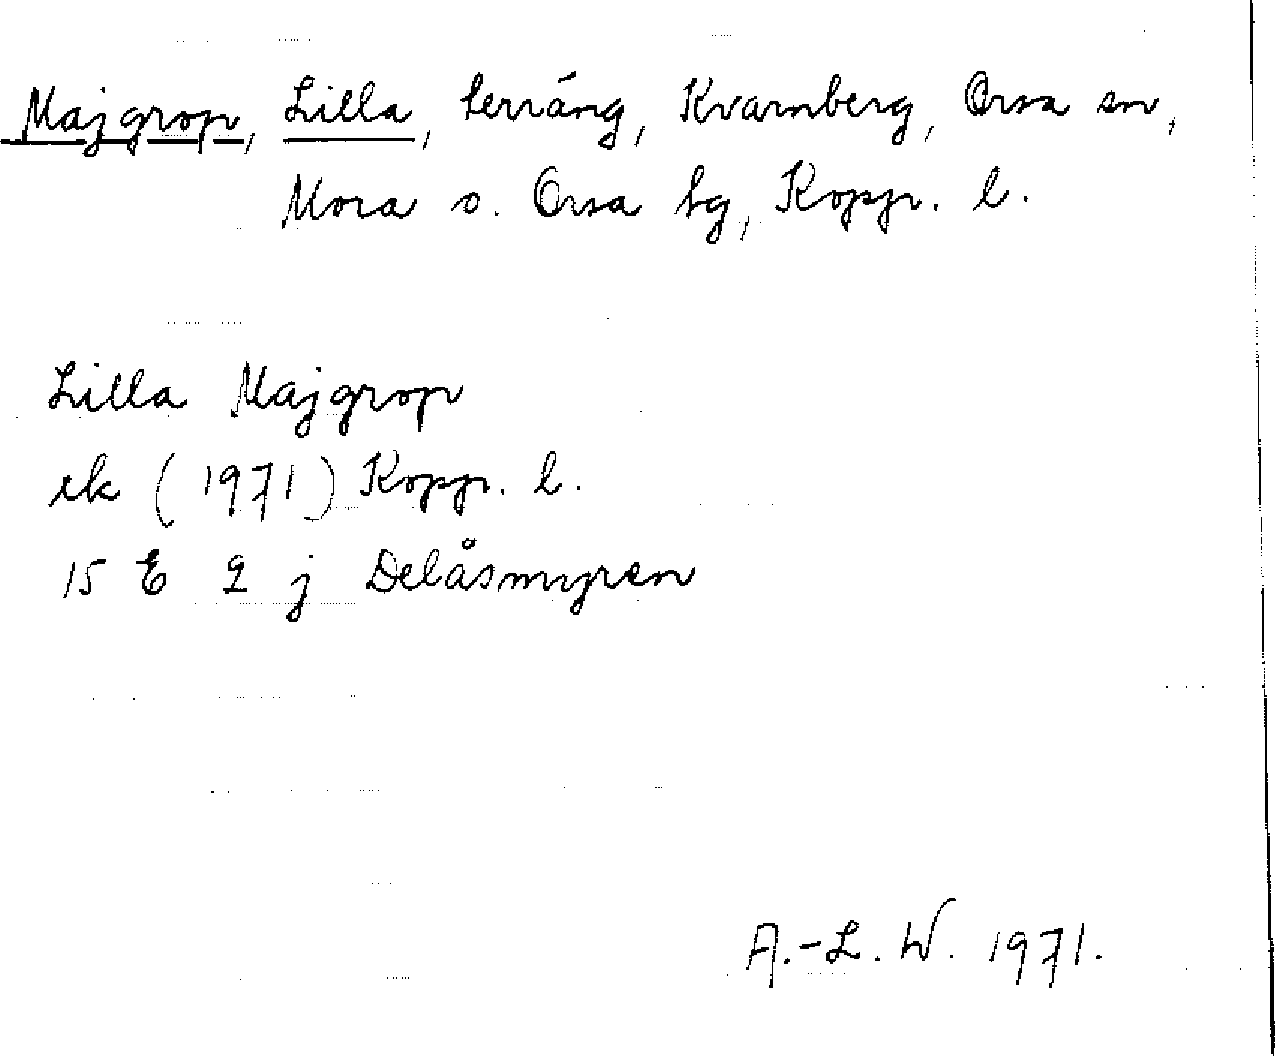 Majgrop, Lilla, terräng, Kvarnberg, Orsa sn,
Mora o. Orsa tg, Kopp. l.
Lilla Majgrop
ek (1971) Kopp. l.
15 E 2 j Delåsmyren
A.-L. W. 1971.